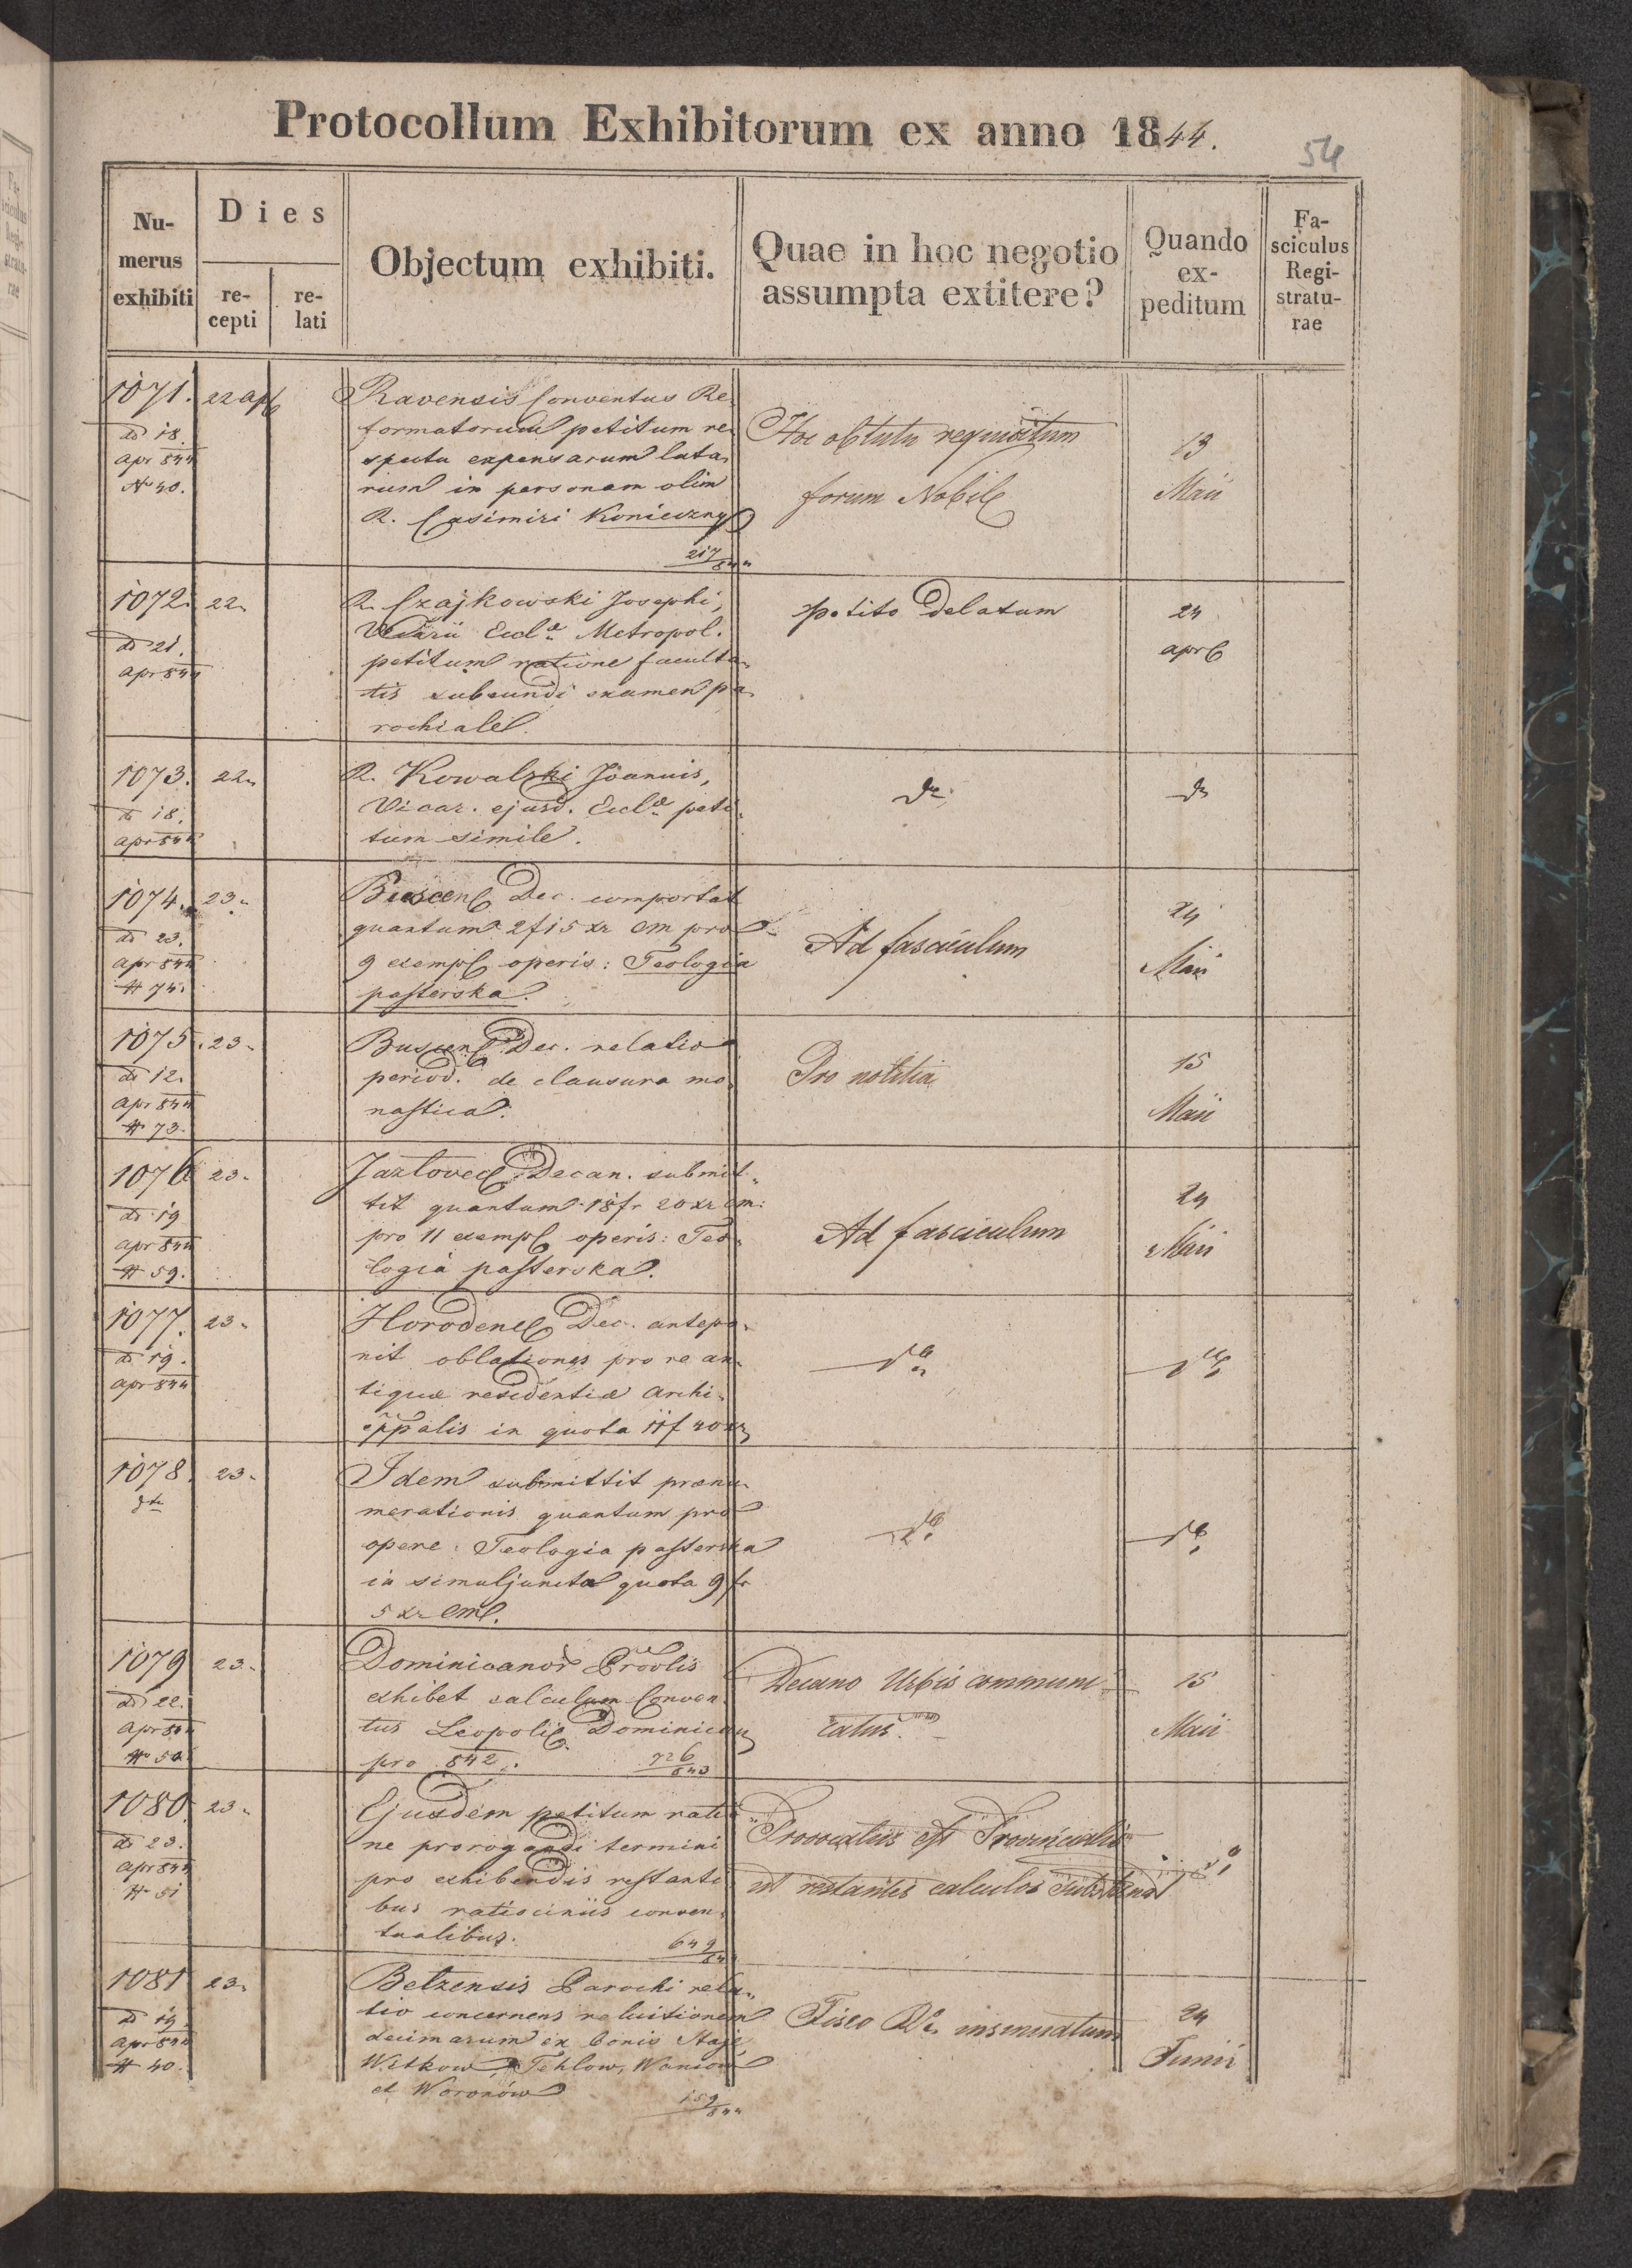 Protocollum Exhibitorum ex anno 1844.
54
Numerus exhibiti
Dies
recepti
relati
Objectum exhibiti.
Quae in hoc negotio assumpta extitere?
Quando expeditum
Fasciculus Registraturae
1071. 22 apr
dd 18.
apr 844
N 40.
Ravensis Conventus Re-
formatorum petitum re-
spectu expensarum lata-
rum in personam olim
R. Casimiri Konieczny
217/844
Hoc obtutu requisitum
forum Nobile
13
Maii
1072. 22.
dd 21.
apr 844
R. Czajkowski Josephi,
Vicarii Eccla Metropol.
petitum ratione faculta-
tis subeundi examen pa-
rochiale.
petito delatum
24
apr
1073. 22.
dd 18.
apr 844
R. Kowalski Joannis,
Vicar. ejusd. Eccla peti-
tum simile.
dto
dto
1074. 23.
dd 23.
apr 844
N 74.
Buscen Dec. comportat
quantum 2f 15 xr CM pro
9 exempl operis: Teologia
pasterska.
Ad fasciculum
24
Maii
1075. 23.
dd 12.
apr 844
N 73.
Buscen Dec. relatio
period. de clausura mo-
nastica.
Pro notitia
15
Maii
1076 23.
dd 19
apr 844
N 59.
Jazlovec Decan. submit-
tit quantum 18fr 20 xr CM:
pro 11 exempl operis: Teo-
logia pasterska.
Ad fasciculum
24
Maii
1077. 23.
dd 19.
apr 844
Horodene Dec. antepo-
nit oblationes pro re an-
tiquæ residentiæ archi-
eppalis in quota 11f 40xr
dto
dto
1078. 23.
dto
Idem submittit prænu-
merationis quantum pro
opere: Teologia pasterska
in simuljuncta quota 9 fr
5 xr CM.
dto
dto
1079 23.
dd 22.
apr 844
N 50
Dominicanor Provlis
exhibet calculum Conven-
tus Leopoli Dominican
pro 842.
726/843
Decano Urbis communi-
catus.
15
Maii
1080. 23.
dd 23.
apr 844
N 51
Ejusdem petitum ratio-
ne prorogandi termini
pro exhibendis restanti-
bus ratiociniis conven-
tualibus.
649/844
Provocatus est Provincialis
ut restantes calculos substernat
dto
1081 23.
dd 19.
apr 844
N 40.
Belzensis Parochi rela-
tio concernens reluitionem
decimarum ex bonis Staje,
Witkow, Tehlow, Waniow
et Woronów
159/844
Fisco Ro insinuatum
24
Junii